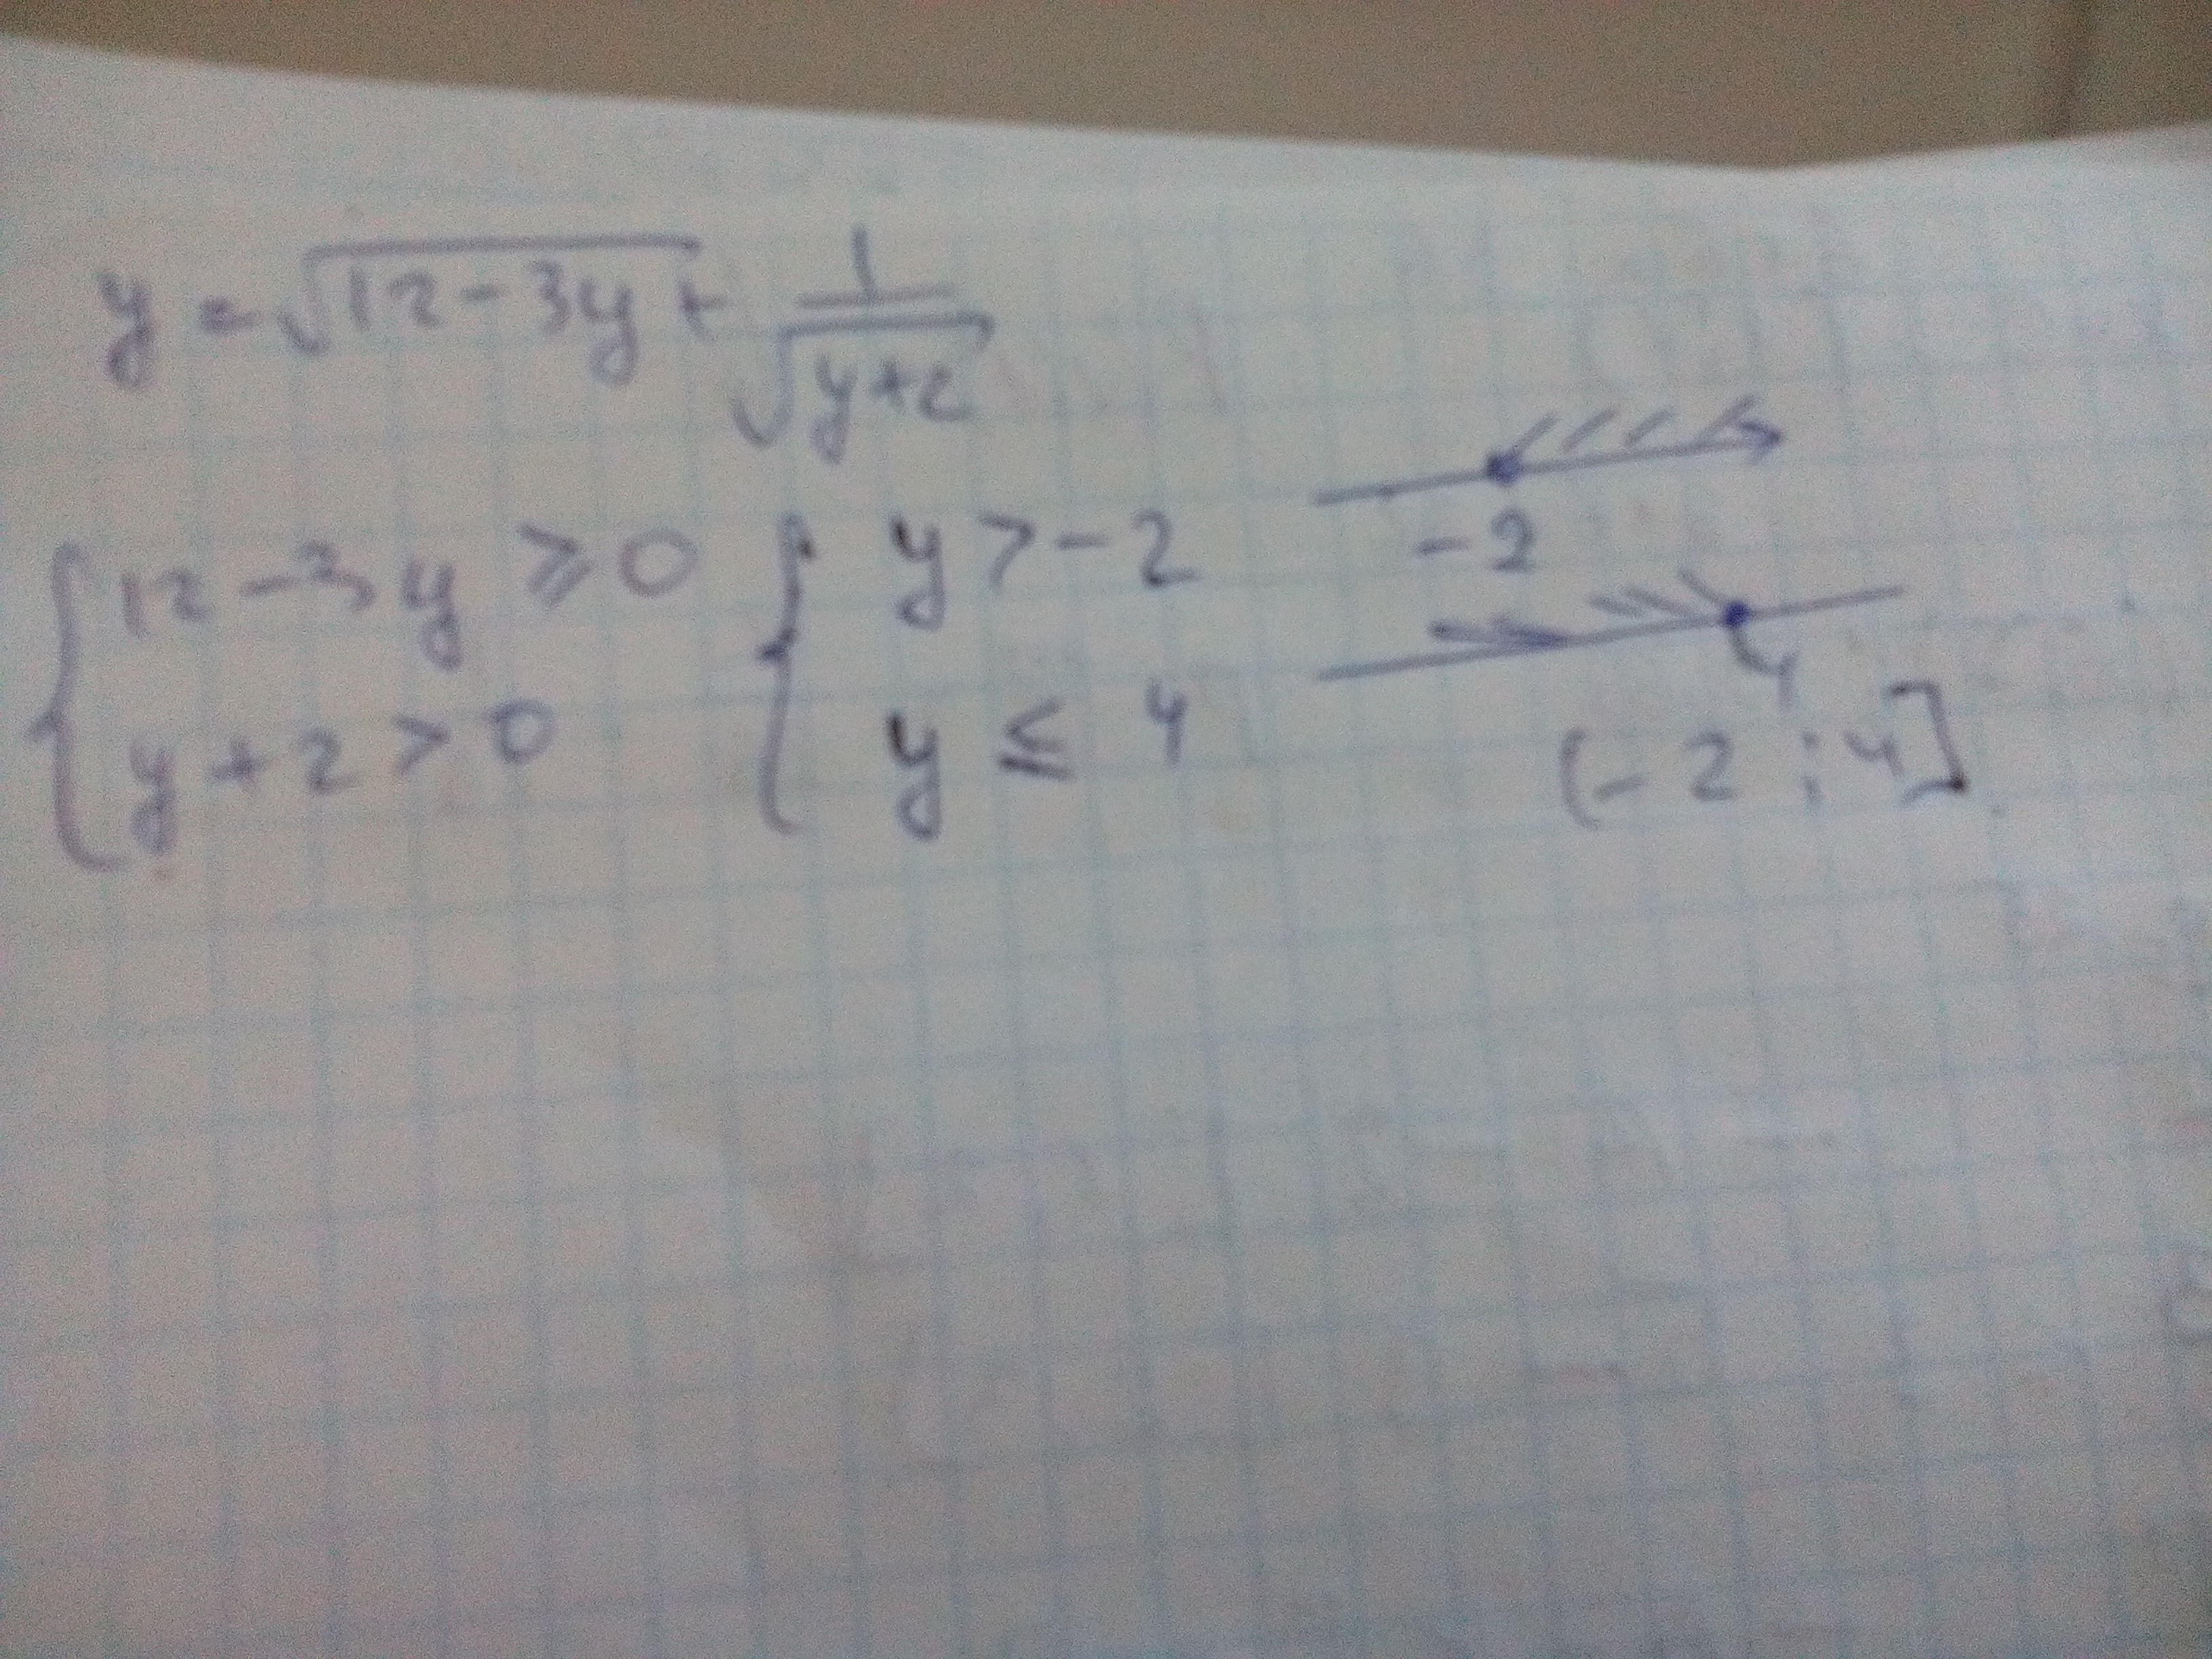 y = √12-3y + 1/√y+2
{ 12-3y ⩾ 0 { y > -2 -2
y+2 > 0 y ≤ 4 4
(-2 ; 4]